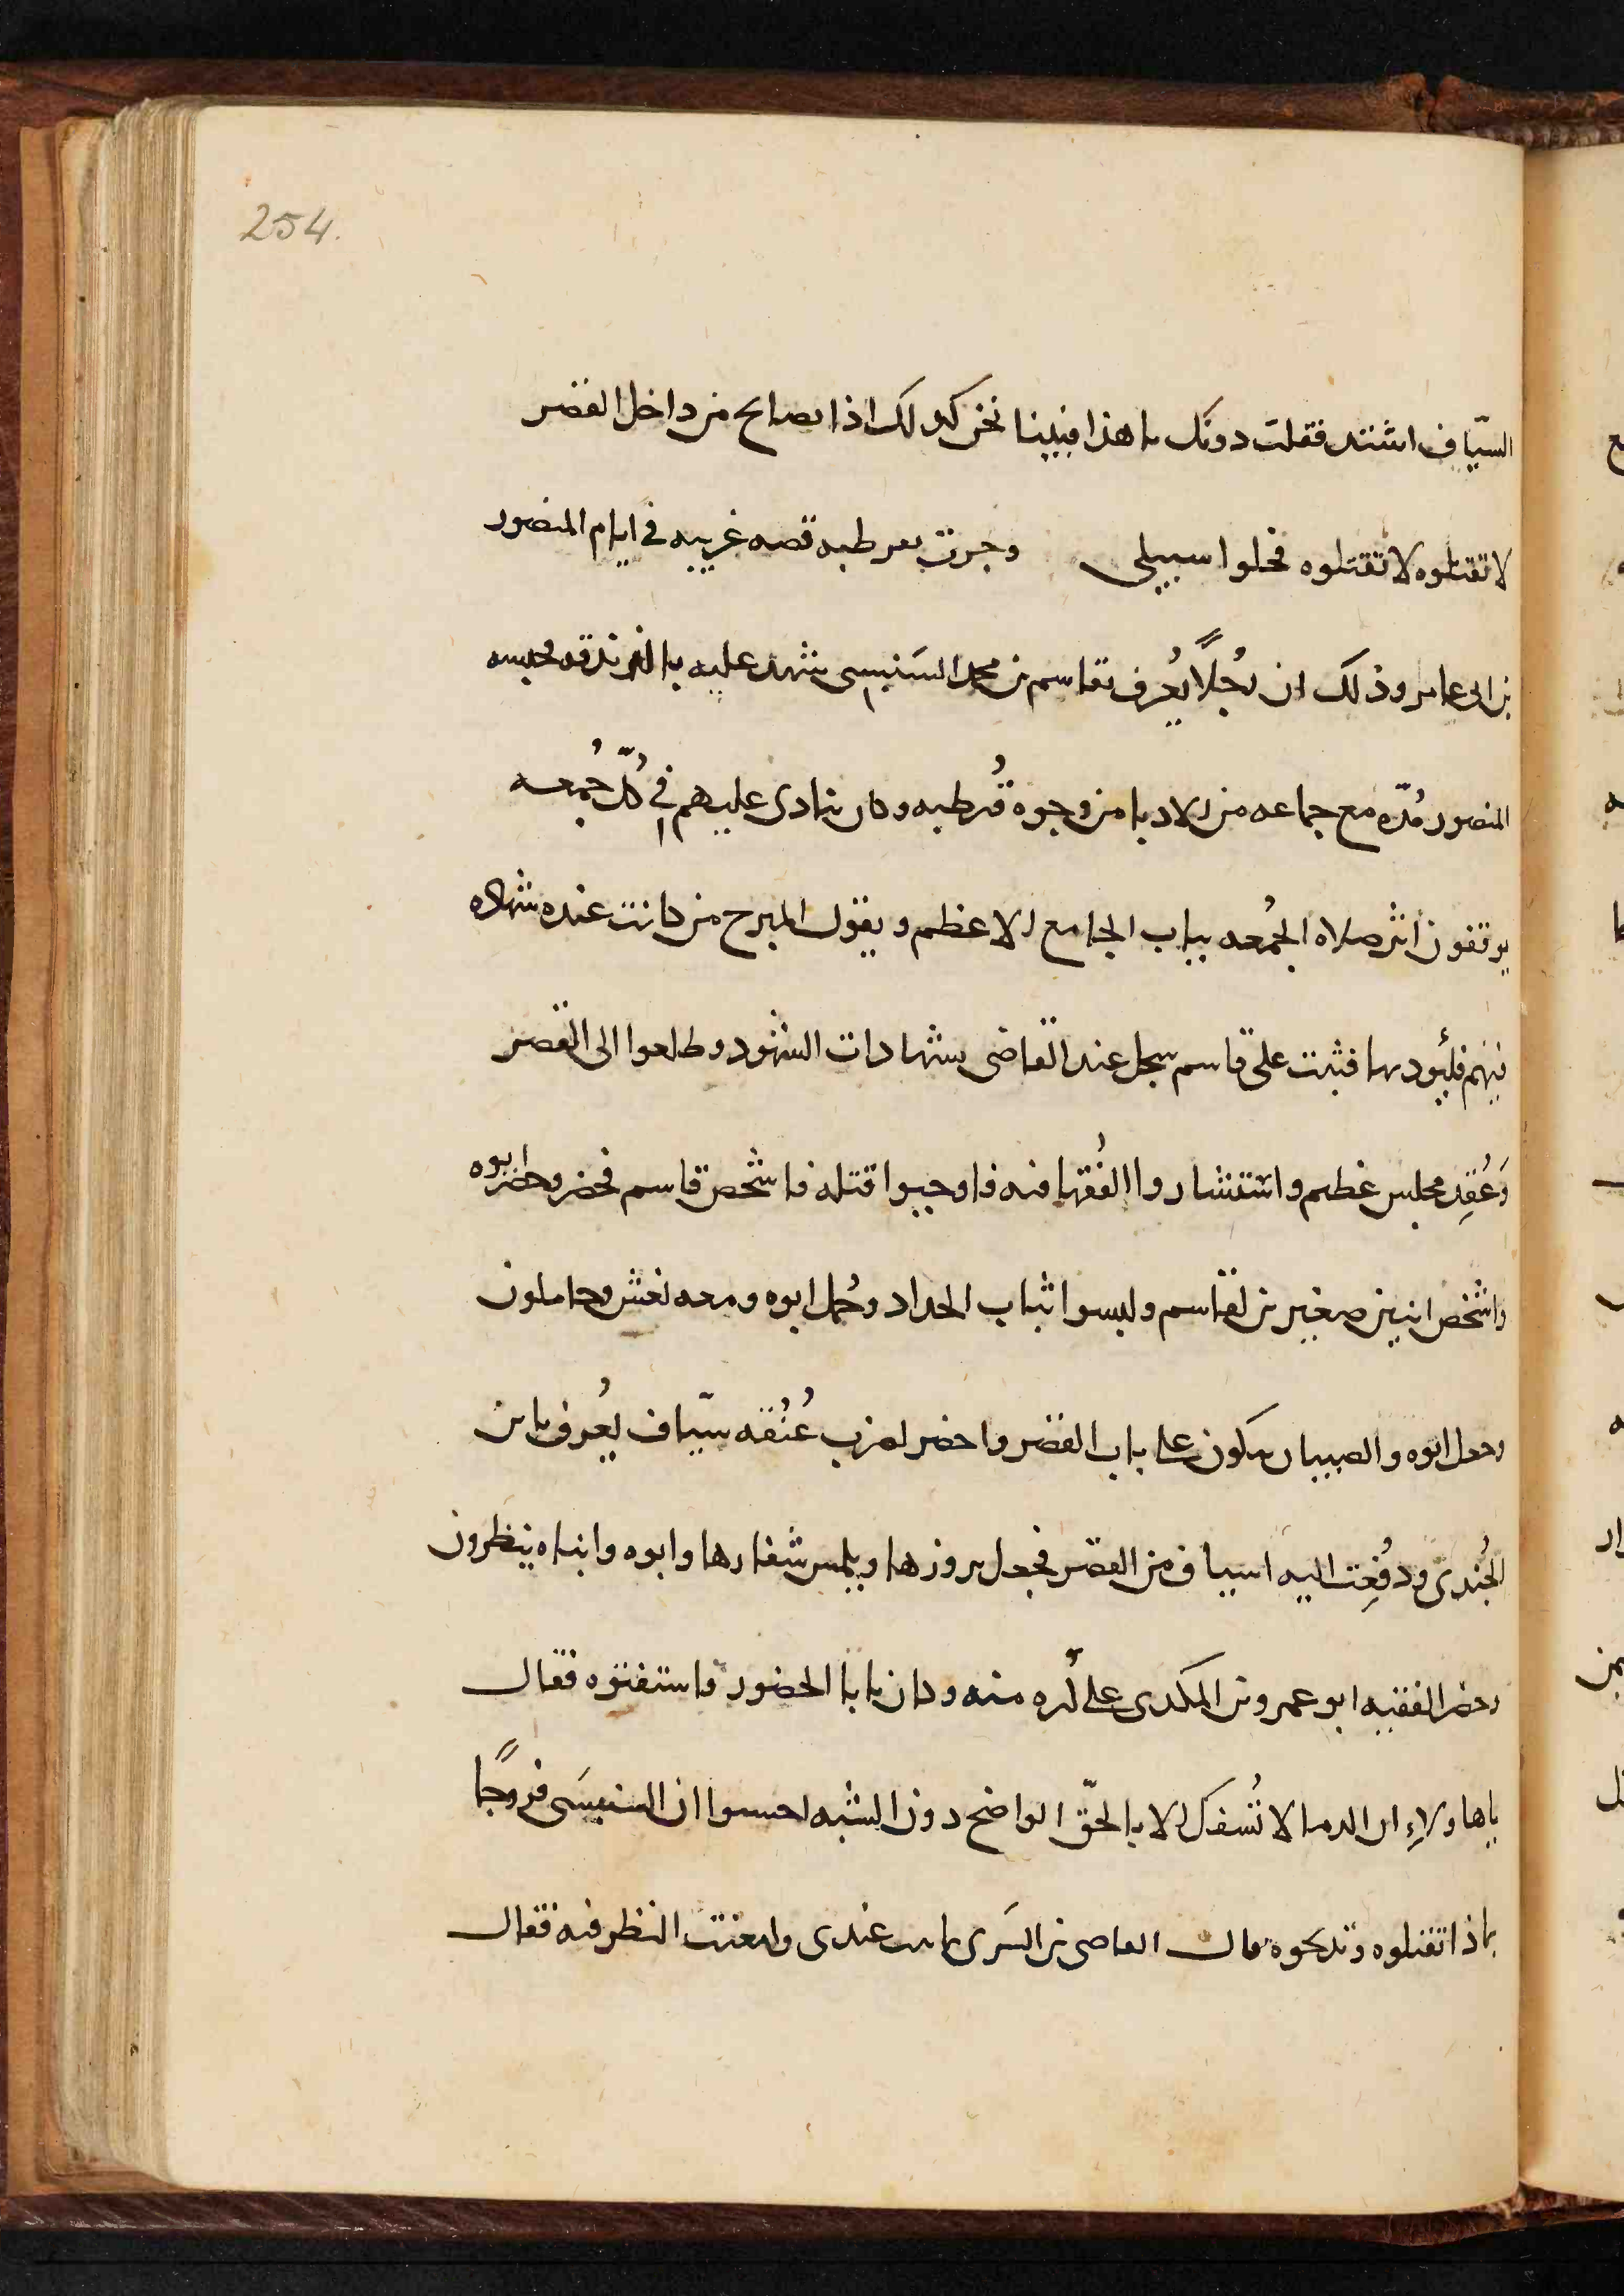 254.
السيّاف اشتد فقلت دونك يا هذا فبينا نحن كذلك اذا بصايح من داخل القصر
لا تقتلوه لا تقتلوه فخلوا سبيلى وجرت بقرطبه قصه غريبه في ايام المنصور
بن ابي عامر وذلك ان رجُلاً يُعرف بقاسم بن محمد السَنبسى شهد عليه بالزندقه فحبسه
المنصور مُدّه مع جماعه من الادبا من وجوه قُرطبه وكان ينادى عليهم في كُلّ جُمعه
يوقفون اثر صلاه الجُمعه بباب الجامع الاعظم ويقول المبرح من كانت عنده شهاده
فيهم فليُود بها فثبت على قاسم سجل عند القاضى بشهادات الشهود وطلعوا الى القصر
وَعُقِد مجلس عظيم واستشاروا الفُقها فيه فاوجبوا قتله فاشخص قاسم فحضر وحضر ابوه
واشخص ابنين صغيرين لقاسم ولبسوا ثياب الحداد وحُمل ابوه ومعه نعش وحاملون
وجعل ابوه والصبيان يبكون على باب القصر واحضر لضرب عُنُقه سيّاف يُعرف بابن
الجُندى ودُفِعت اليه اسياف من القصر فجعل يروزها ويلمس شفارها وابوه وابناه ينظرون
وحضر الفقيه ابو عمرو بن المكوى على كُره منه وكان يابا الحضور فاستفتوه فقال
يا هاولاءِ ان الدما لا تُسفك الا بالحقّ الواضح دون الشبه احسبوا ان السنبسَى فروجًا
بماذا تقتلوه وتذبحوه قال القاضى بن السَرى ثابت عندى وامعنت النظر فيه فقال